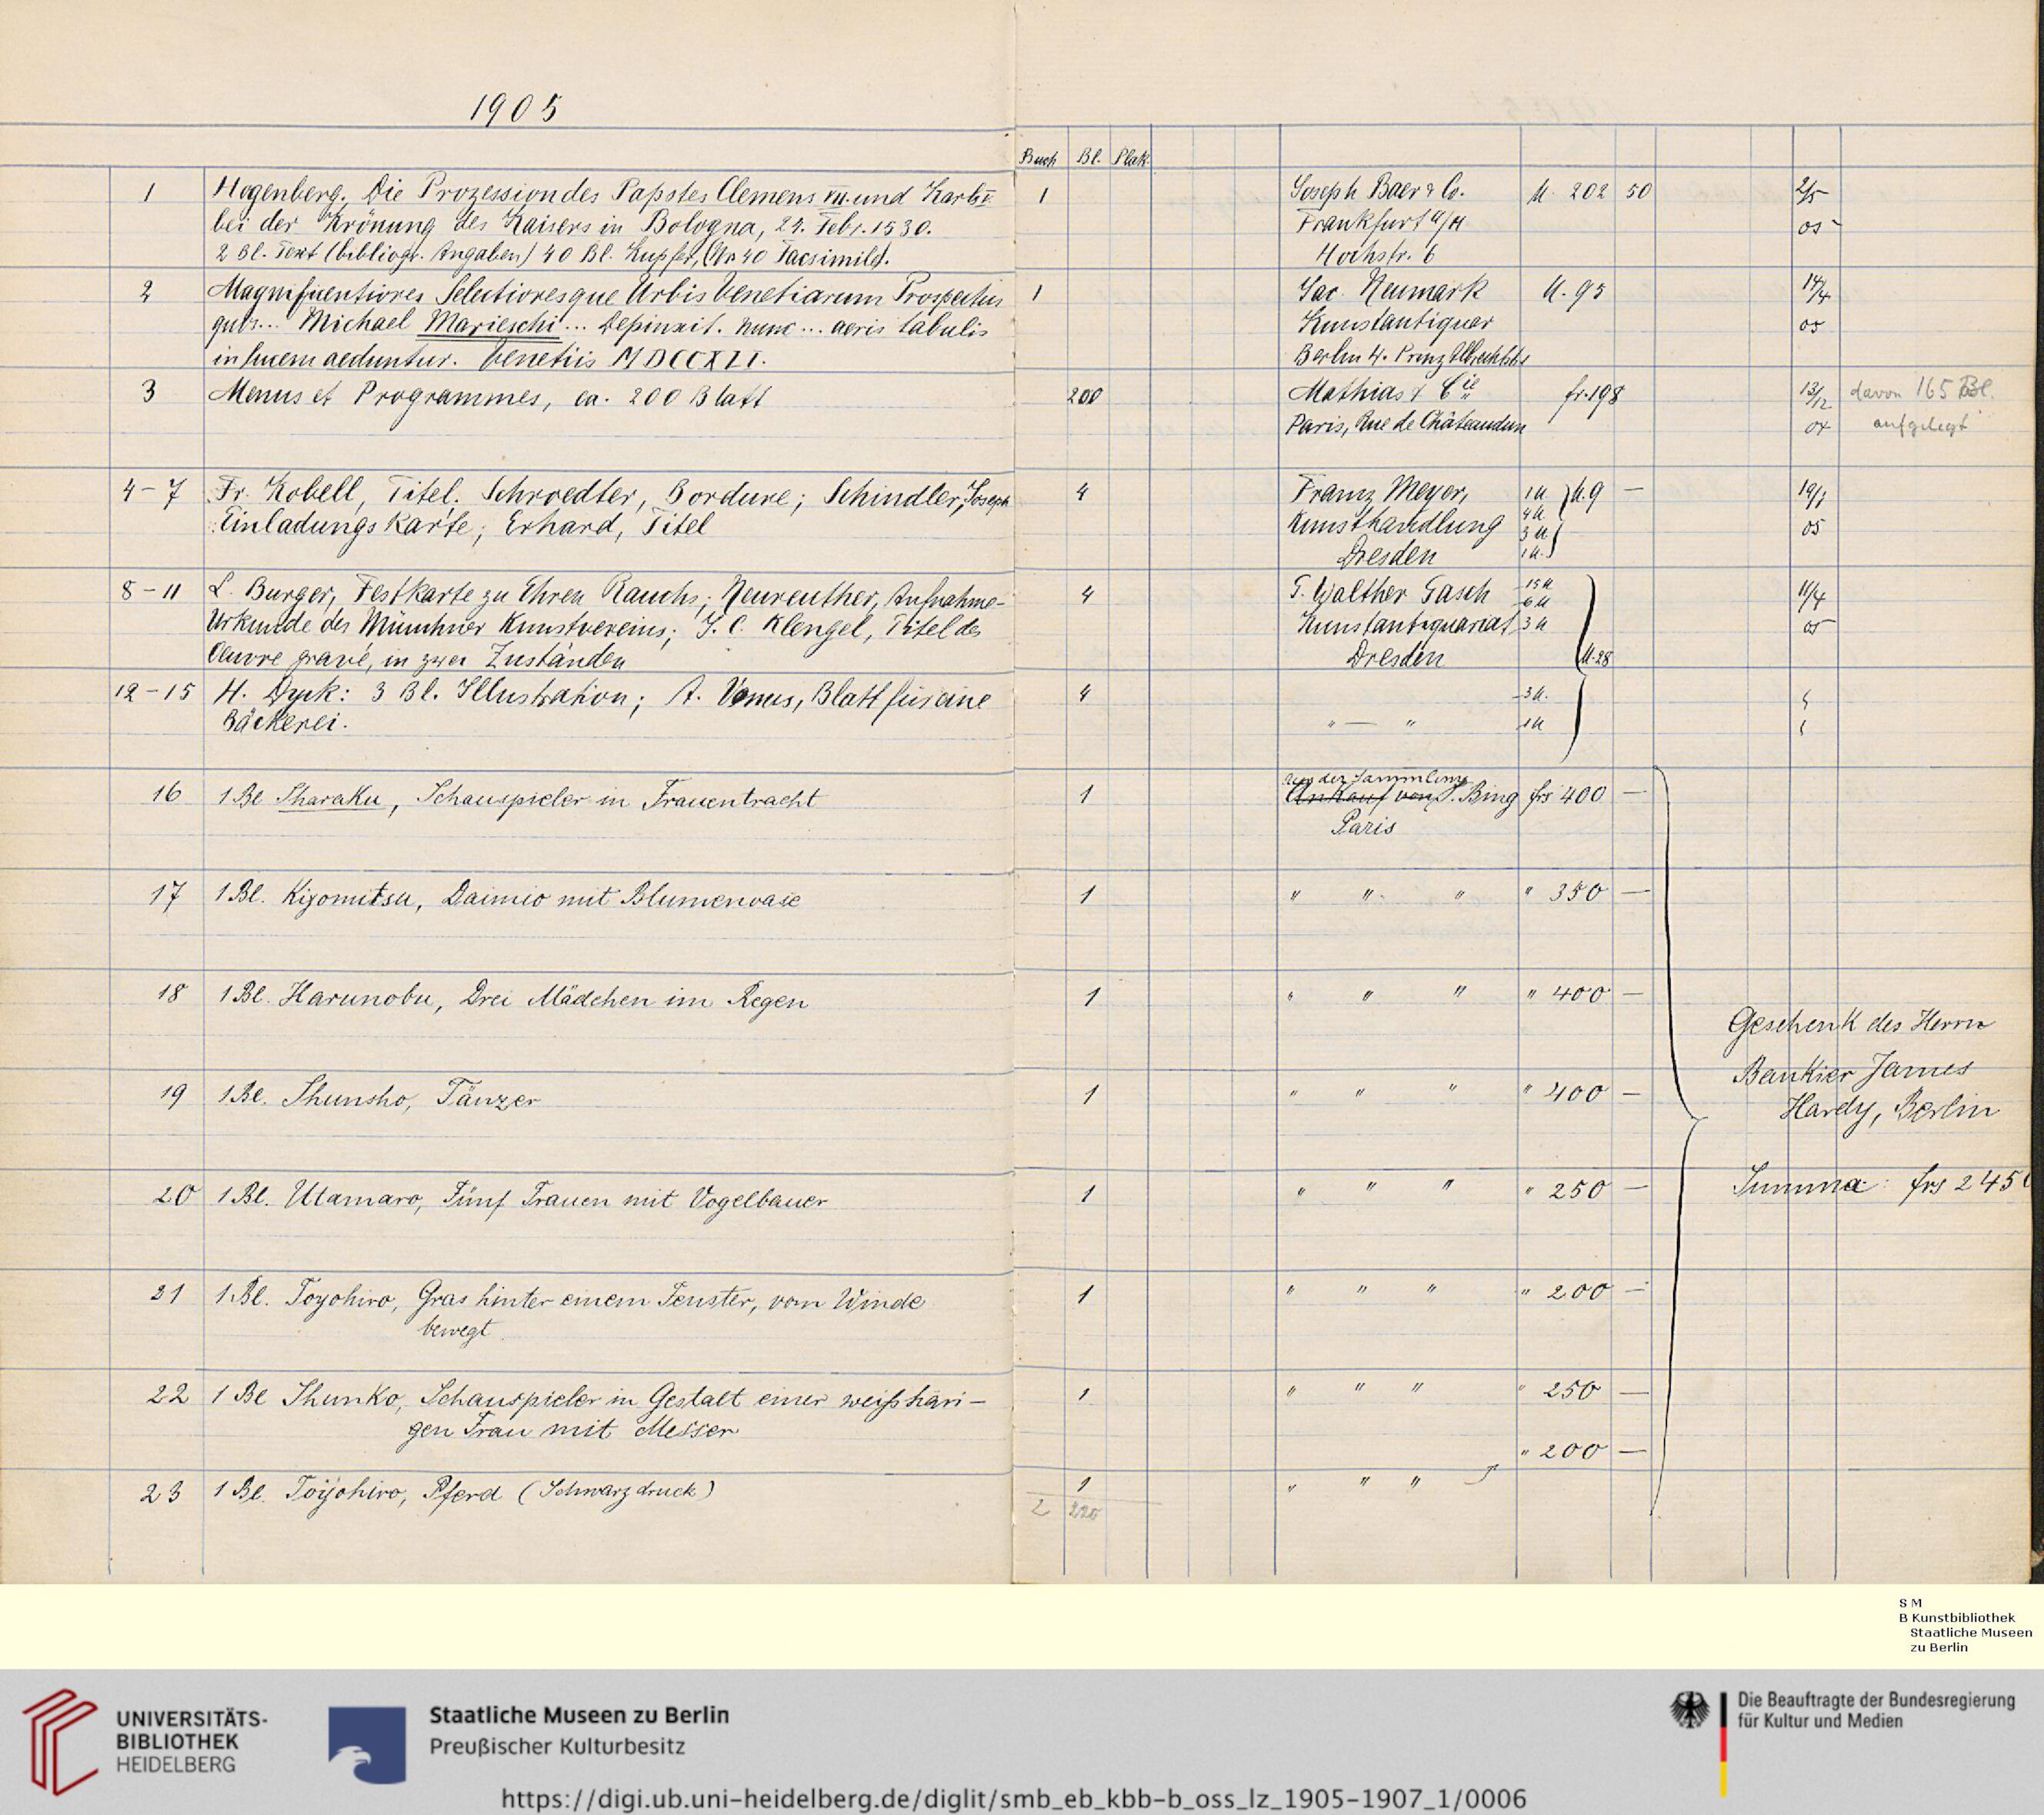 1905
Buch Bl. Plak.
1 Hogenberg. Die Prozession des Papstes Clemens VII. und Karls V. 1 Joseph Baer & Co. M. 202 50 2/5
bei der Krönung des Kaisers in Bologna, 24. Febr. 1530. Frankfurt a/M 05
2 Bl. Text (bibliogr. Angaben) 40 Bl. Kupfer, (Nr 40 Facsimile). Hochstr. 6
2 Magnificentiores Selectioresque Urbis Venetiarum Prospectus 1 Jac. Neumark M. 95 14/4
quos... Michael Marieschi... depinxit. nunc... aeris tabulis Kunstantiquar 05
in lucem aeduntur. Venetiis MDCCXLI. Berlin W. Prinz Albrechtstr
3 Menus et Programmes, ca. 200 Blatt 200 Mathias & Cie fr. 198 13/12 davon 165 Bl.
Paris, Rue de Châteaudun 04 aufgelegt
4-7 Fr. Kobell, Titel; Schroedter, Bordure; Schindler, Joseph 4 Franz Meyer, 1 M. M. 9 — 19/1
Einladungskarte; Erhard, Titel Kunsthandlung 4 M. 3 M 05
Dresden 1 M.
8-11 L. Burger, Festkarte zu Ehren Rauchs; Neureuther, Aufnahme- 4 T. Walther Gasch 15 M 6 M 11/4
Urkunde des Münchner Kunstvereins; J. C. Klengel, Titel des Kunstantiquariat 3 M 05
Oeuvre gravé, in zwei Zuständen Dresden M. 28
12-15 H. Dyck: 3 Bl. Illustration; A. Venus, Blatt für eine 4 3 M.
Bäckerei. " — " 1 M
aus der Sammlung
16 1 Bl Sharaku, Schauspieler in Frauentracht 1 Ankauf von S. Bing frs 400 —
Paris
17 1 Bl. Kiyomitsu, Daimio mit Blumenvase 1 " " " " 350 —
18 1 Bl. Harunobu, Drei Mädchen im Regen 1 " " " " 400 —
Geschenk des Herrn
Bankier James
19 1 Bl. Shunsho, Tänzer 1 " " " " 400 —
Hardy, Berlin
20 1 Bl. Utamaro, Fünf Frauen mit Vogelbauer 1 " " " " 250 — Summa: frs 2450
21 1 Bl. Toyohiro, Gras hinter einem Fenster, vom Winde 1 " " " " 200 —
bewegt
22 1 Bl Shunko, Schauspieler in Gestalt einer weißhäri- 1 " " " " 250 —
gen Frau mit Messer
" 200 —
23 1 Bl. Toyohiro, Pferd (Schwarzdruck) 1 " " "
2 220
S M
B Kunstbibliothek
Staatliche Museen
zu Berlin
UNIVERSITÄTS-
BIBLIOTHEK
HEIDELBERG
Staatliche Museen zu Berlin
Preußischer Kulturbesitz
Die Beauftragte der Bundesregierung
für Kultur und Medien
https://digi.ub.uni-heidelberg.de/diglit/smb_eb_kbb-b_oss_lz_1905-1907_1/0006